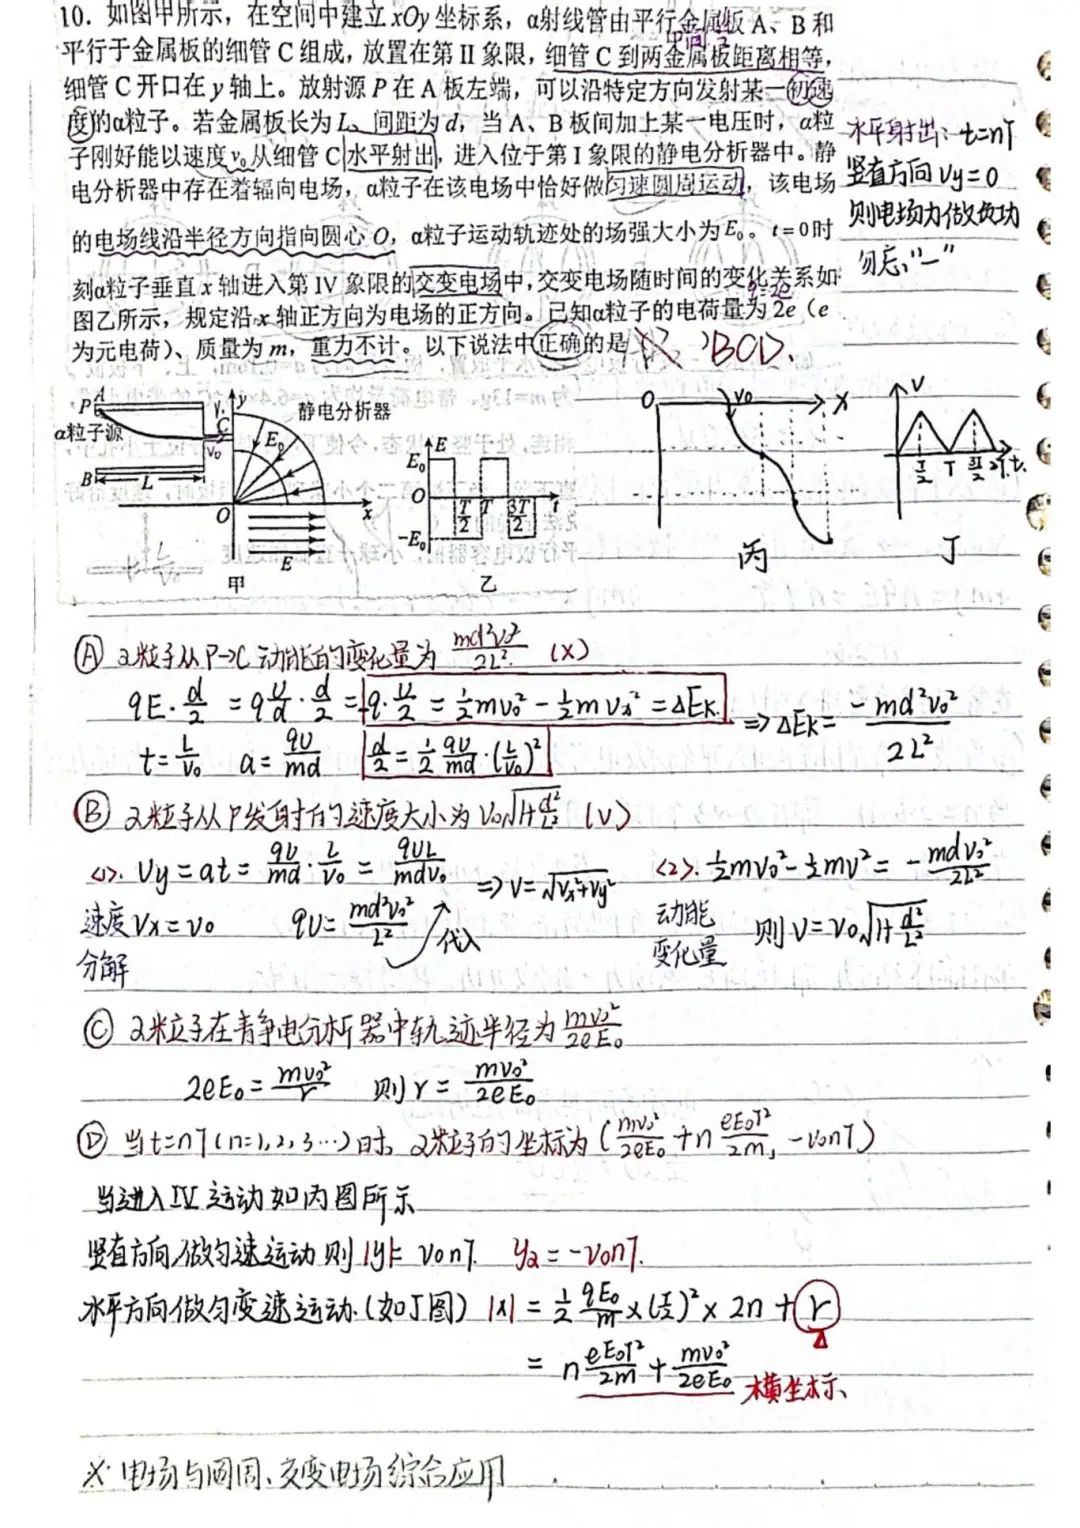 10. 如图甲所示，在空间中建立 xOy 坐标系，α射线管由平行金属板 A、B 和
中间
平行于金属板的细管 C 组成，放置在第 II 象限，细管 C 到两金属板距离相等，
细管 C 开口在 y 轴上。放射源 P 在 A 板左端，可以沿特定方向发射某一初速
度的α粒子。若金属板长为 L、间距为 d，当 A、B 板间加上某一电压时，α粒
子刚好能以速度 v₀ 从细管 C 水平射出，进入位于第 I 象限的静电分析器中。静
电分析器中存在着辐向电场，α粒子在该电场中恰好做匀速圆周运动，该电场
的电场线沿半径方向指向圆心 O，α粒子运动轨迹处的场强大小为 E₀。t＝0 时
刻α粒子垂直 x 轴进入第 IV 象限的交变电场中，交变电场随时间的变化关系如
图乙所示，规定沿 x 轴正方向为电场的正方向。已知α粒子的电荷量为 2e（e
为元电荷）、质量为 m，重力不计。以下说法中正确的是
BCD.
水平射出：t=nT
竖直方向 Vy=0
则电场力做负功
勿忘"-"
A
P
α粒子源
B
L
V.
C
v₀
y
E₀
静电分析器
O
x
E
甲
E
E₀
O
-E₀
T/2
T
3T/2
t
乙
O
v₀
x
丙
V
T/2
T
3T/2
2T
t.
丁
Ⓐ α粒子从P→C 动能的变化量为 md²v₀²/2L². (×)
qE·d/2 = qU/d·d/2 = -q·U/2 = ½mv₀² - ½mVx² = ΔEk. => ΔEk= -md²v₀²/2L²
t=L/v₀ a=qU/md d/2=½ qU/md·(L/v₀)²
Ⓑ α粒子从P发射时的速度大小为 v₀√(1+d²/L²) (√)
<1>. Vy=at= qU/md·L/v₀ = qUL/mdv₀ => V=√(Vx²+Vy²)
<2>. ½mv₀²-½mv²= -mdv₀²/2L²
速度 Vx=v₀ qU= md²v₀²/L² 代入
分解
动能
变化量 则 V=v₀√(1+d²/L²)
Ⓒ α粒子在青争电分析器中轨迹半径为 mv₀²/2eE₀
2eE₀= mv₀²/r 则 r= mv₀²/2eE₀
Ⓓ 当t=nT (n=1,2,3…)时，α粒子的坐标为 (mv₀²/2eE₀ + n eE₀T²/2m, -v₀nT)
当进入IV 运动如丙图所示
竖直方向做匀速运动 则 |y|= v₀nT. y₂=-v₀nT.
水平方向做匀变速运动.(如丁图) |x| = ½ qE₀/m×(T/2)²× 2n + r
= n eE₀T²/2m + mv₀²/2eE₀ 横坐标
※ 电场与圆周、交变电场综合应用